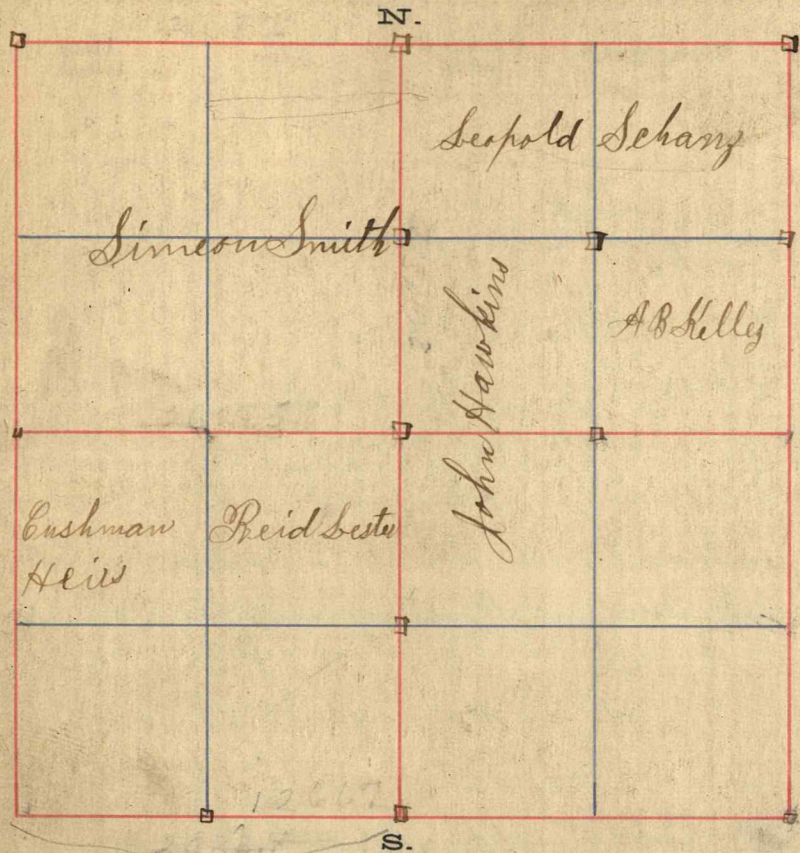 N.
Leopold Schanz
Simeon Smith
John Hawkins
A B Kelley
Cushman
Heirs
Reid Lester
12667
S.